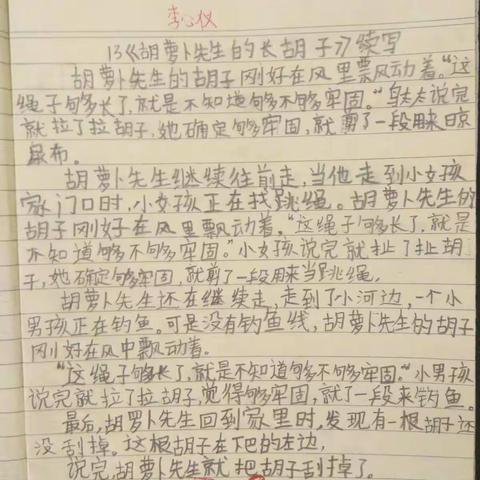 李心仪
13《胡萝卜先生的长胡子》续写
胡萝卜先生的胡子刚好在风里飘动着。“这
绳子够长了,就是不知道够不够牢固。”鸟太太说完
就拉了拉胡子,她确定够牢固,就剪了一段用来晾
尿布。
胡萝卜先生继续往前走,当他走到小女孩
家门口时,小女孩正在找跳绳。胡萝卜先生的
胡子刚好在风里飘动着。“这绳子够长了,就是
不知道够不够牢固。”小女孩说完就扯了扯胡
子,她确定够牢固,就剪了一段用来当跳绳。
胡萝卜先生还在继续走,走到了小河边,一个小
男孩正在钓鱼。可是没有钓鱼线,胡萝卜先生的胡子
刚好在风中飘动着。
“这绳子够长了,就是不知道够不够牢固。”小男孩
说完就拉了拉胡子,觉得够牢固,就了一段来钓鱼。
最后,胡萝卜先生回到家里时,发现有一根胡子还
没刮掉。这根胡子在下巴的左边,
说完,胡萝卜先生就把胡子刮掉了。